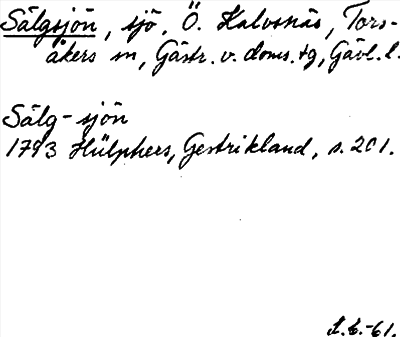 Sälgsjön, sjö, Ö. Kalvsnäs, Tors-
åkers sn, Gästr. v. doms. tg, Gävl. l.
Sälg-sjön
1793 Hülphers, Gestrikland, s. 201.
-61.